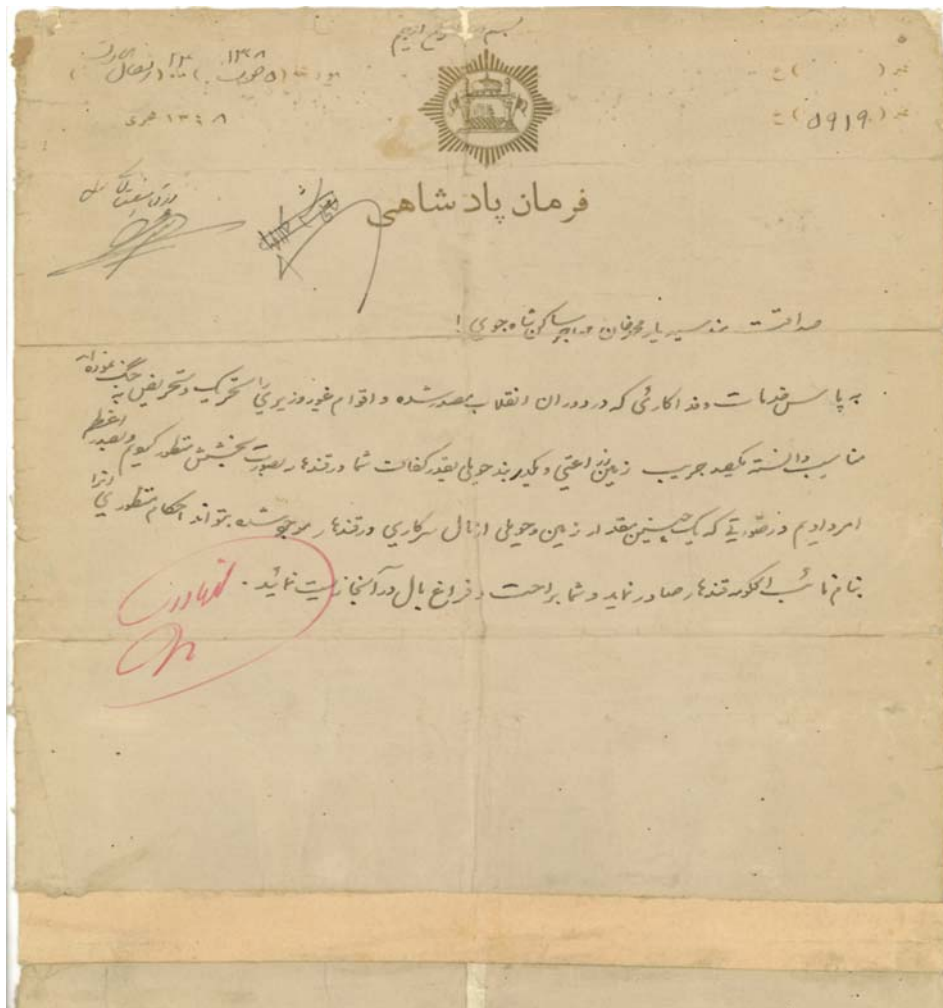 بسم الله الرحمن الرحیم
نمبر ( ) ح
نمبر (۵۹۱۹) ح
۱۳۰۸
۱۳۴۸ هجری
فرمان پادشاهی
صداقت سید یار محمد خان مهاجر ساکن شاه جوی !
به پاس خدمات و فداکارئی که در دوران انقلاب مصدر شده و اقوام غیور وزیری را تحریک و تحریض به جنگ نموده اید
مناسب دانسته یکصد جریب زمین زراعتی و یکدربند حویلی بقدر کفالت شما در قندهار بصورت بخشش منظور کردیم و بصدر اعظم
امر دادیم در صورتے که یک چنین مقدار زمین و حویلی از مال سرکاری در قندهار موجود شده بتواند احکام منظوری آنرا
بنام نائب الحکومه قندهار صادر نماید و شما براحت و فراغ بال در آنجا زیست نمائید .